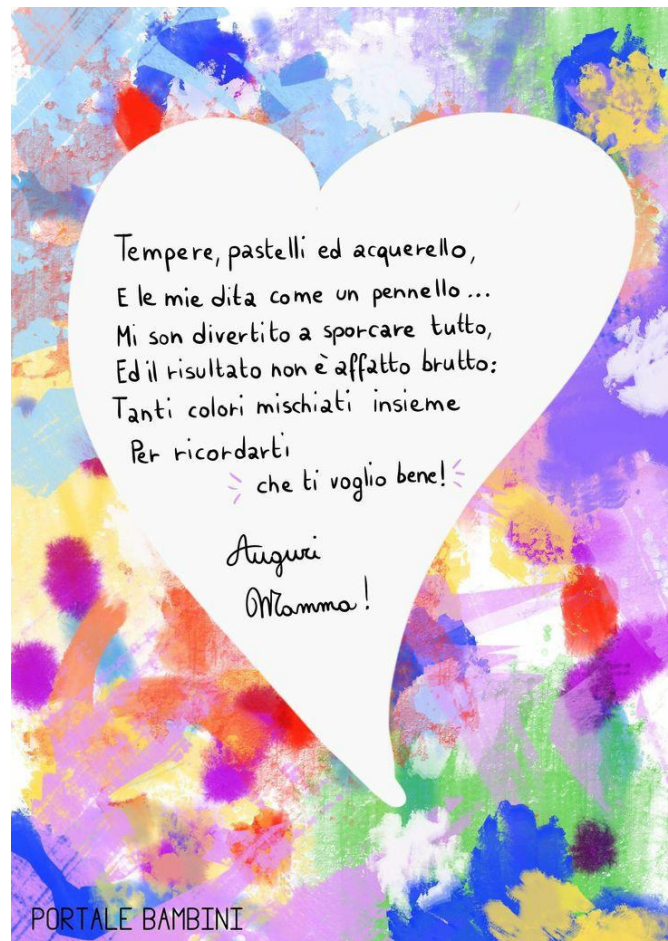 Tempere, pastelli ed acquerello,
E le mie dita come un pennello...
Mi son divertito a sporcare tutto,
Ed il risultato non è affatto brutto:
Tanti colori mischiati insieme
Per ricordarti
che ti voglio bene!
Auguri
Mamma!
PORTALE BAMBINI